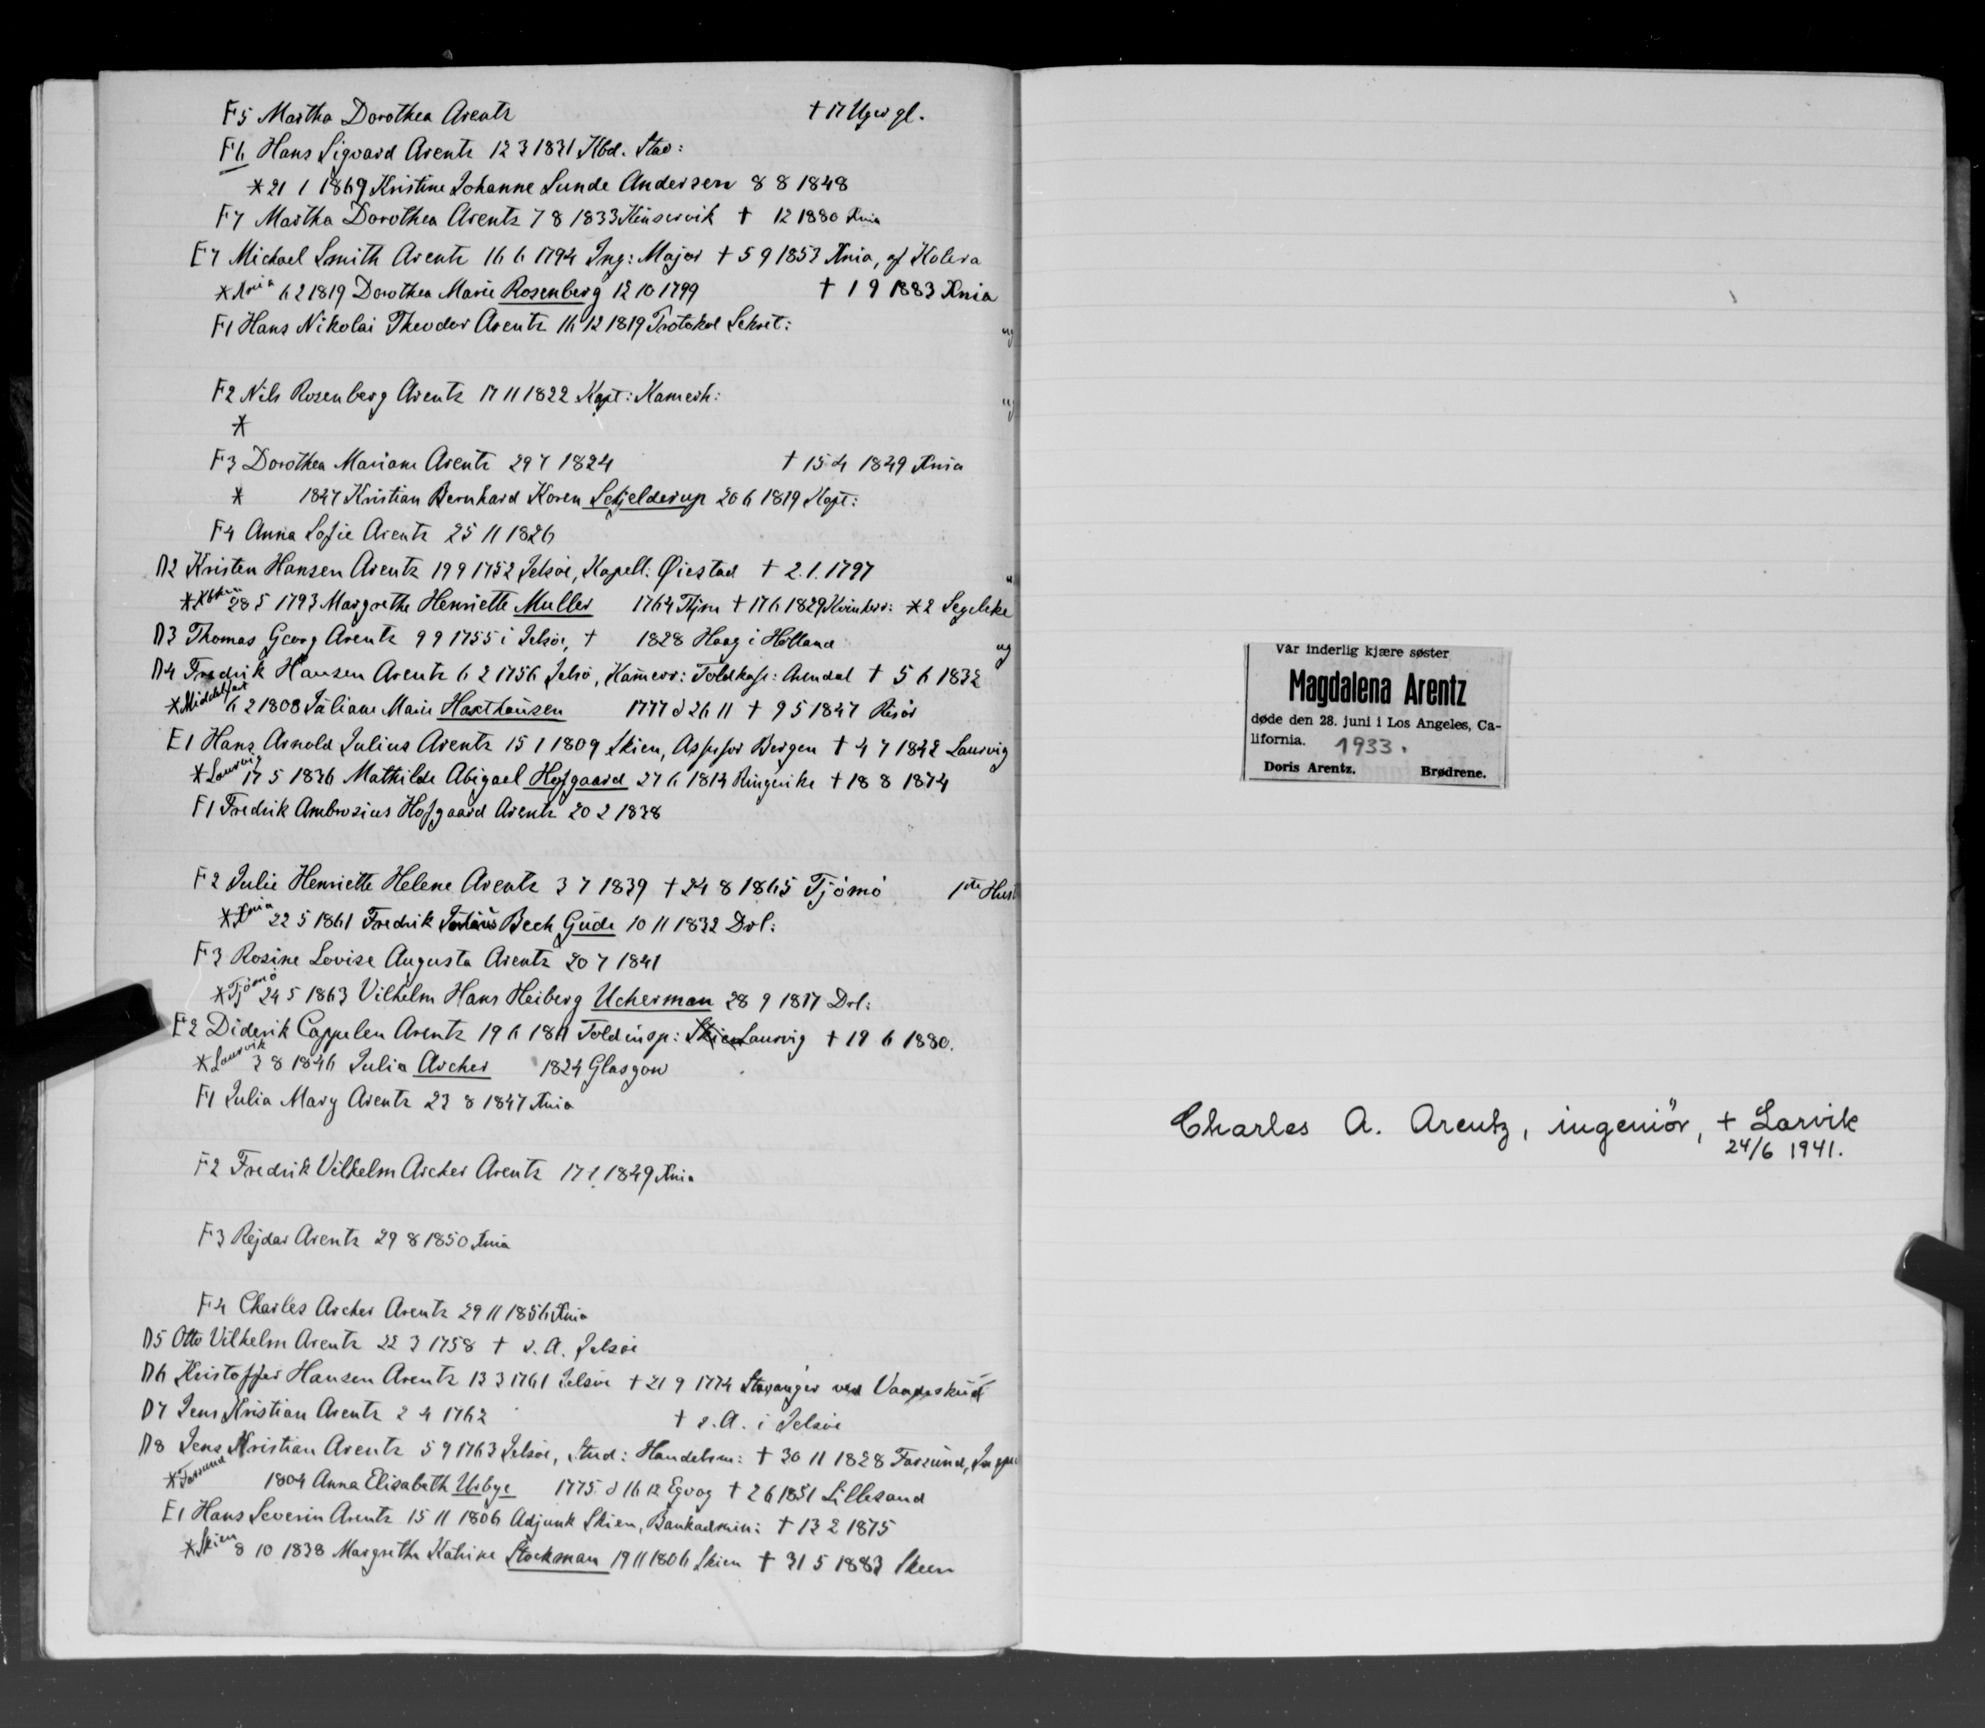 F5 Martha Dorothea Arentz † 17 Uger gl.
F6 Hans Sigvard Arentz 12 3 1831 Kbd. Stav:
* 21 1 1869 Kristine Johanne Lunde Andersen 8 8 1848
F7 Martha Dorothea Arentz 7 8 1833 Kinservik † 12 1880 Kria
E7 Michael Smith Arentz 16 6 1794 Ing: Major † 5 9 1853 Kria, af Kolera
* Kria 6 2 1819 Dorothea Marie Rosenberg 12 10 1799 † 1 9 1883 Kria
F1 Hans Nikolai Theodor Arentz 16 12 1819 Protokol Sekret: ug
F2 Nils Rosenberg Arentz 17 11 1822 Kapt: Kamerh: ug
*
F3 Dorothea Mariane Arentz 29 7 1824 † 15 4 1849 Kria
* 1847 Kristian Bernhard Koren Schjelderup 20 6 1819 Kapt:
F4 Anna Sofie Arentz 25 11 1826
D2 Kristen Hansen Arentz 19 9 1752 Jelsøe, Kapell: Øiestad † 2.1.1797
* 28 5 1793 Margrethe Henriette Muller 1764 † 17 6 1829 *2 Segelcke
D3 Thomas Georg Arentz 9 9 1755 i Jelsøe, † 1828 Haag i Holland ug
D4 Fredrik Hansen Arentz 6 2 1756 Jelsø, Kamerr: Toldkass: Arendal † 5 6 1832
* Middelfart 6 2 1808 Juliane Marie Haxthausen 1777 d 26 11 † 9 5 1847 Risør
E1 Hans Arnold Julius Arentz 15 1 1809 Skien, Assessor Bergen † 4 7 1842 Laurvig
* Laurvig 17 5 1836 Mathilde Abigael Hofgaard 27 6 1814 Ringerike † 18 8 1874
F1 Fredrik Ambrosius Hofgaard Arentz 20 2 1838
F2 Julie Henriette Helene Arentz 3 7 1839 † 24 8 1865 Tjømø 1ste Hust
* Kria 22 5 1861 Fredrik Bech Gude 10 11 1832 Drl:
F3 Rosine Lovise Augusta Arentz 20 7 1841
* Tjømø 24 5 1863 Vilhelm Hans Heiberg Ucherman 28 9 1817 Drl:
E2 Diderik Cappelen Arentz 19 6 1811 Toldinsp: Skien Laurvig † 19 6 1880.
* Laurvik 3 8 1846 Julia Archer 1824 Glasgow
F1 Julia Mary Arentz 23 8 1847 Kria
F2 Fredrik Vilhelm Archer Arentz 17 1 1849 Kria
F3 Rejdar Arentz 29 8 1850 Kria
F4 Charles Archer Arentz 29 11 1856 Kria
D5 Otto Vilhelm Arentz 22 3 1758 † s. A. Jelsøe
D6 Kristoffer Hansen Arentz 13 3 1761 Jelsøe † 21 9 1774 Stavanger ved Vaadeskud
D7 Jens Kristian Arentz 2 4 1762 † s. A. i Jelsøe
D8 Jens Kristian Arentz 5 9 1763 Jelsøe, Stud: Handelsm: † 30 11 1828 Farsund,
* Farsund 1804 Anna Elisabeth Urbye 1775 d 16 12 Egvog † 2 6 1851 Lillesand
E1 Hans Severin Arentz 15 11 1806 Adjunk Skien, Bankadmin: † 13 2 1875
* Skien 8 10 1838 Margrethe Katrine Stockman 19 11 1806 Skien † 31 5 1883 Skien
Vår inderlig kjære søster
Magdalena Arentz
døde den 28. juni i Los Angeles, Ca-
lifornia. 1933.
Doris Arentz. Brødrene.
Charles A. Arentz, ingeniör, + Larvik
24/6 1941.